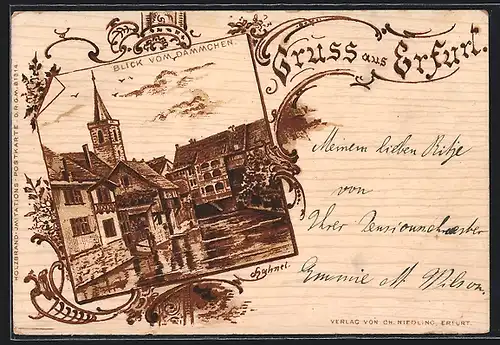 Gruss aus Erfurt.
BLICK VOM DÄMMCHEN.
HOLZBRAND-IMITATIONS-POSTKARTE. D.R.G.M. 81814.
Meinem lieben Ritje
von
Ihrer
Emmie M. Wilson.
Hahnel.
VERLAG VON CH. NIEDLING, ERFURT.